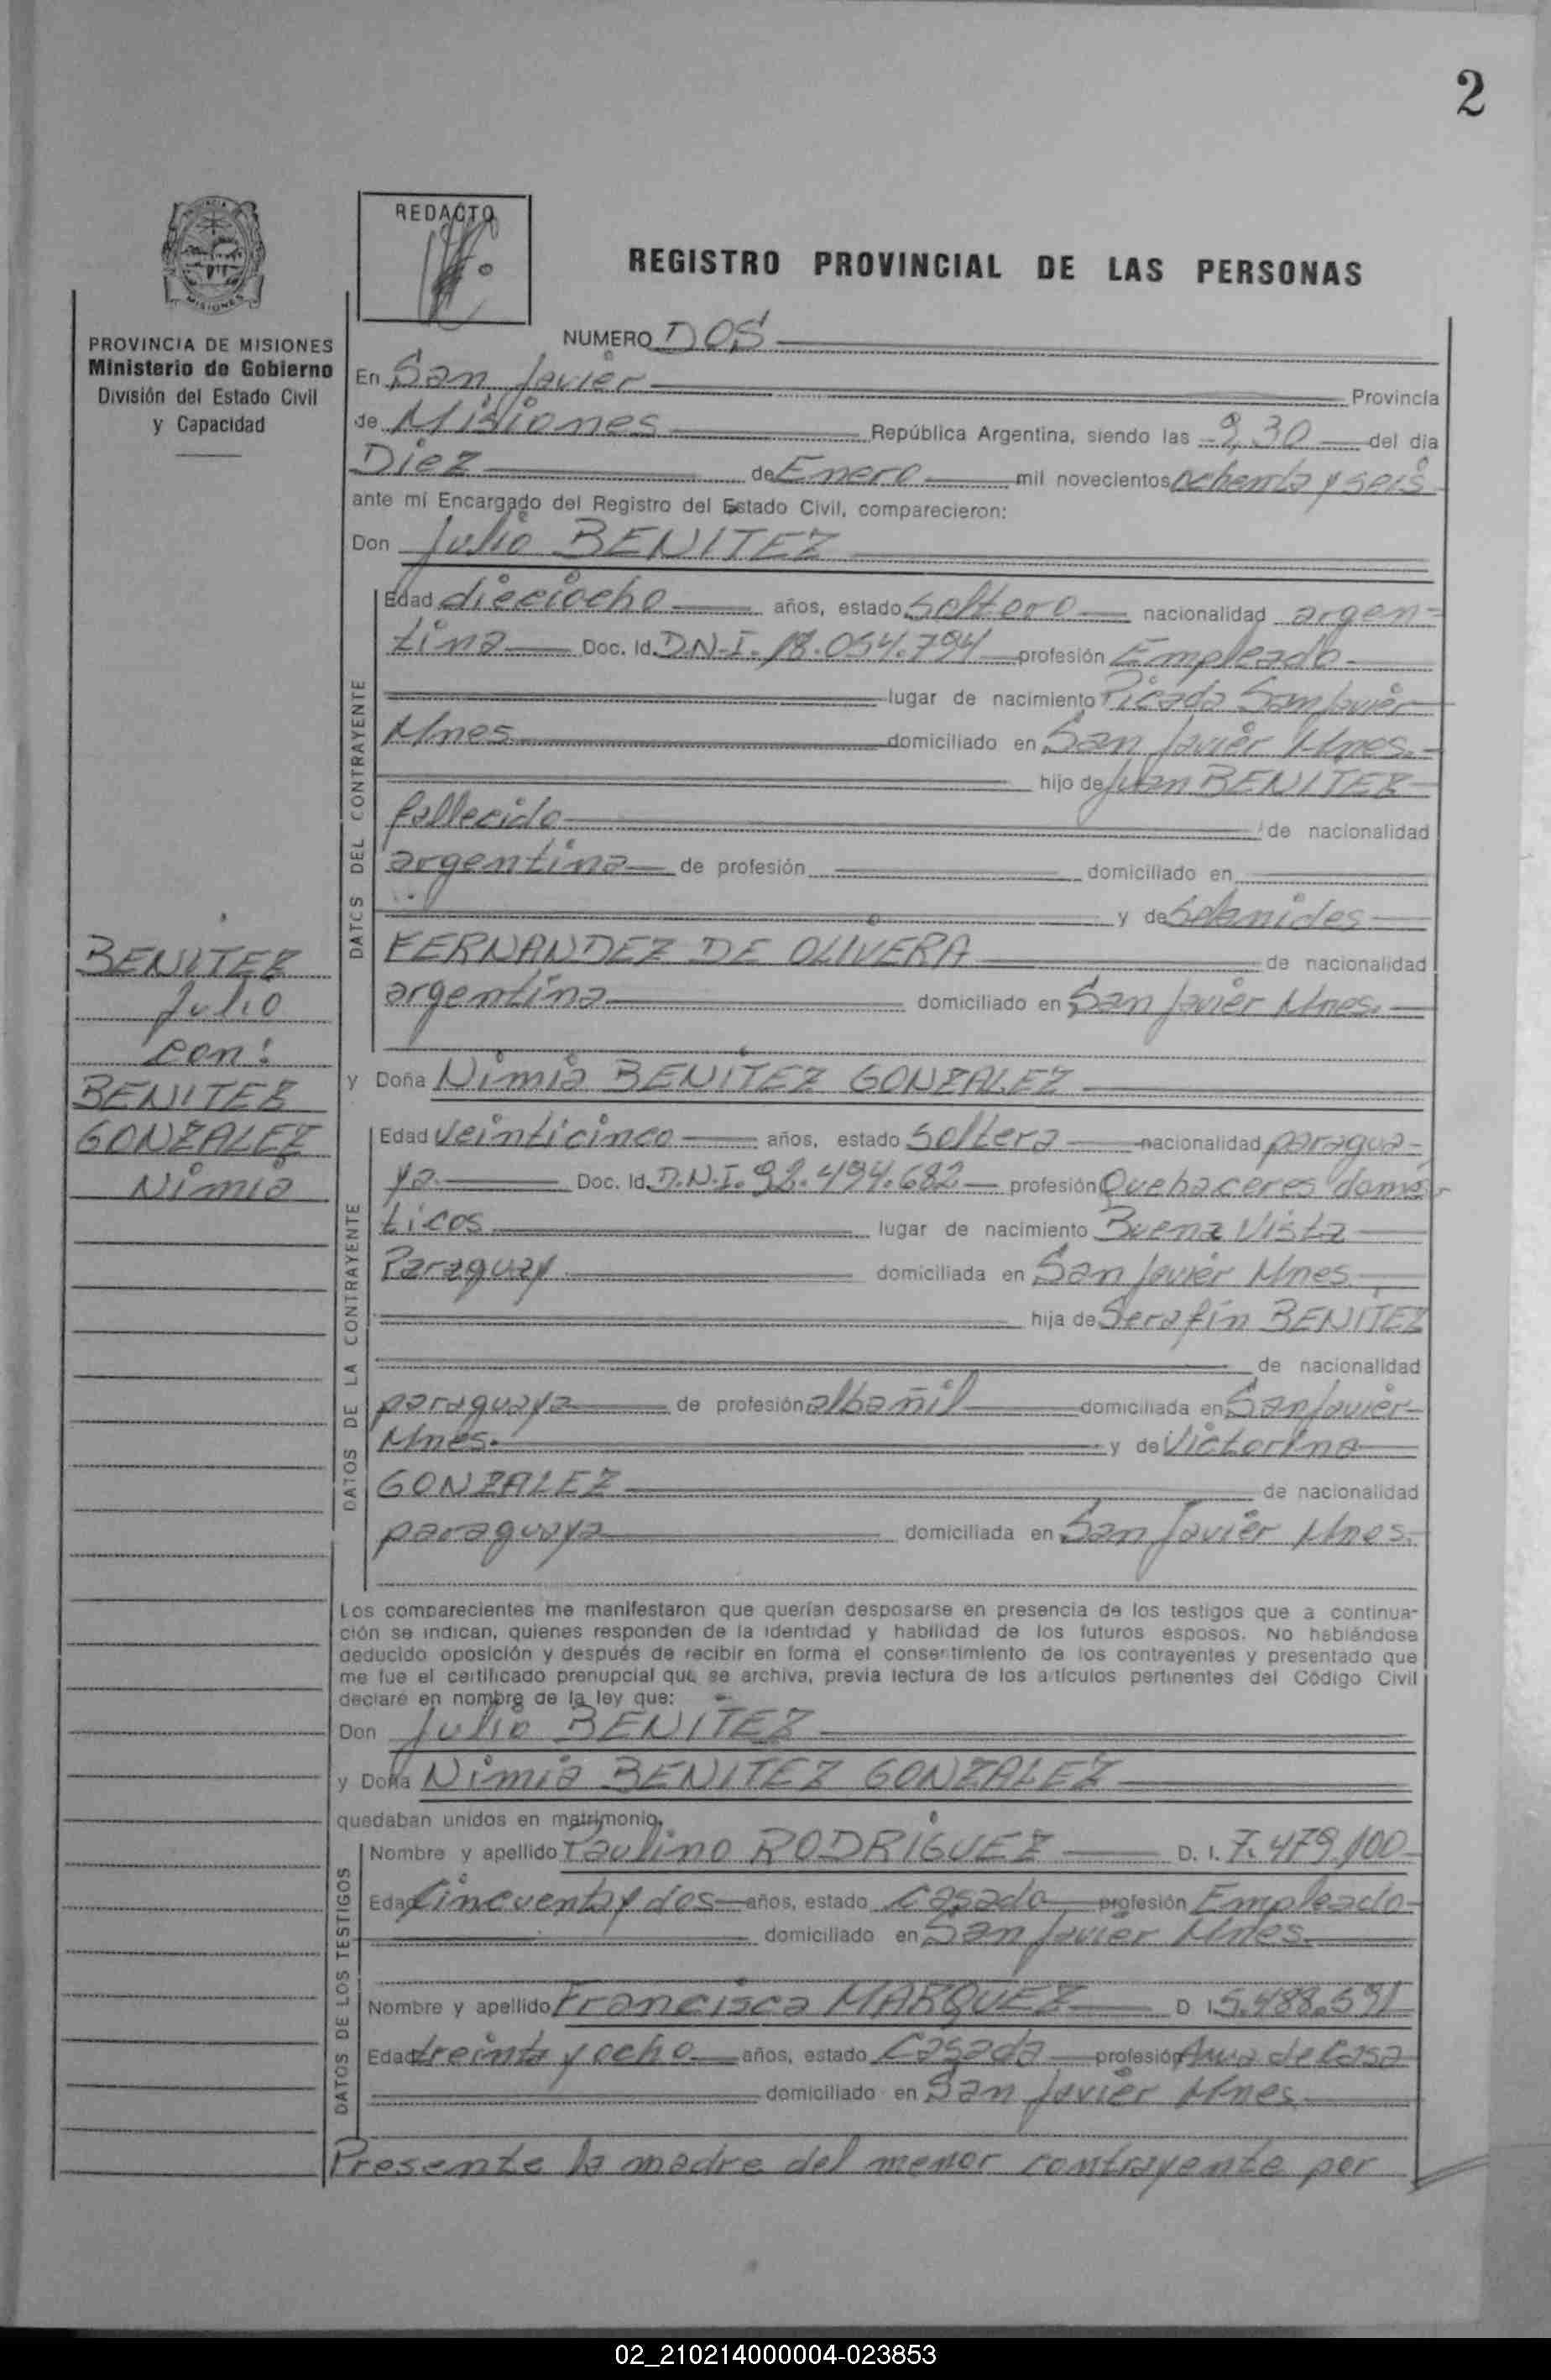 2
REDACTO
REGISTRO PROVINCIAL DE LAS PERSONAS
MISIONES
PROVINCIA DE MISIONES
Ministerio de Gobierno
División del Estado Civil
y Capacidad
NUMERO DOS
En San Javier Provincia
de Misiones República Argentina, siendo las 9,30 del día
Diez de Enero mil novecientos ochenta y seis
ante mí Encargado del Registro del Estado Civil, comparecieron:
Don Julio BENITEZ
DATOS DEL CONTRAYENTE
Edad dieciocho años, estado soltero nacionalidad argen-
tina Doc. Id. D.N.I. 18.054.794 profesión Empleado
lugar de nacimiento Picada San Javier
Mnes domiciliado en San Javier Mnes.
hijo de Juan BENITEZ
fallecido de nacionalidad
argentina de profesión domiciliado en
y de
FERNANDEZ DE OLIVERA de nacionalidad
argentina domiciliado en San Javier Mnes.
BENITEZ
Julio
con:
BENITEZ
GONZALEZ
Nimia
y Doña Nimia BENITEZ GONZALEZ
DATOS DE LA CONTRAYENTE
Edad veinticinco años, estado soltera nacionalidad paragua-
ya Doc. Id. D.N.I. 92.494.682 profesión Quehaceres domés-
ticos lugar de nacimiento Buena Vista
Paraguay domiciliada en San Javier Mnes
hija de Serafín BENITEZ
de nacionalidad
paraguaya de profesión albañil domiciliada en San Javier
Mnes. y de Victorina
GONZALEZ de nacionalidad
paraguaya domiciliada en San Javier Mnes.
Los comparecientes me manifestaron que querían desposarse en presencia de los testigos que a continua-
ción se indican, quienes responden de la identidad y habilidad de los futuros esposos. No habiéndose
deducido oposición y después de recibir en forma el consentimiento de los contrayentes y presentado que
me fue el certificado prenupcial que se archiva, previa lectura de los artículos pertinentes del Código Civil
declaré en nombre de la ley que:
Don Julio BENITEZ
y Doña Nimia BENITEZ GONZALEZ
quedaban unidos en matrimonio.
DATOS DE LOS TESTIGOS
Nombre y apellido Paulino RODRIGUEZ D. I. 7.479.100
Edad Cincuenta y dos años, estado Casado profesión Empleado
domiciliado en San Javier Mnes
Nombre y apellido Francisca MARQUEZ D I 5.488.591
Edad treinta y ocho años, estado Casada profesión Ama de Casa
domiciliado en San Javier Mnes
Presente la madre del menor contrayente por
02_210214000004-023853